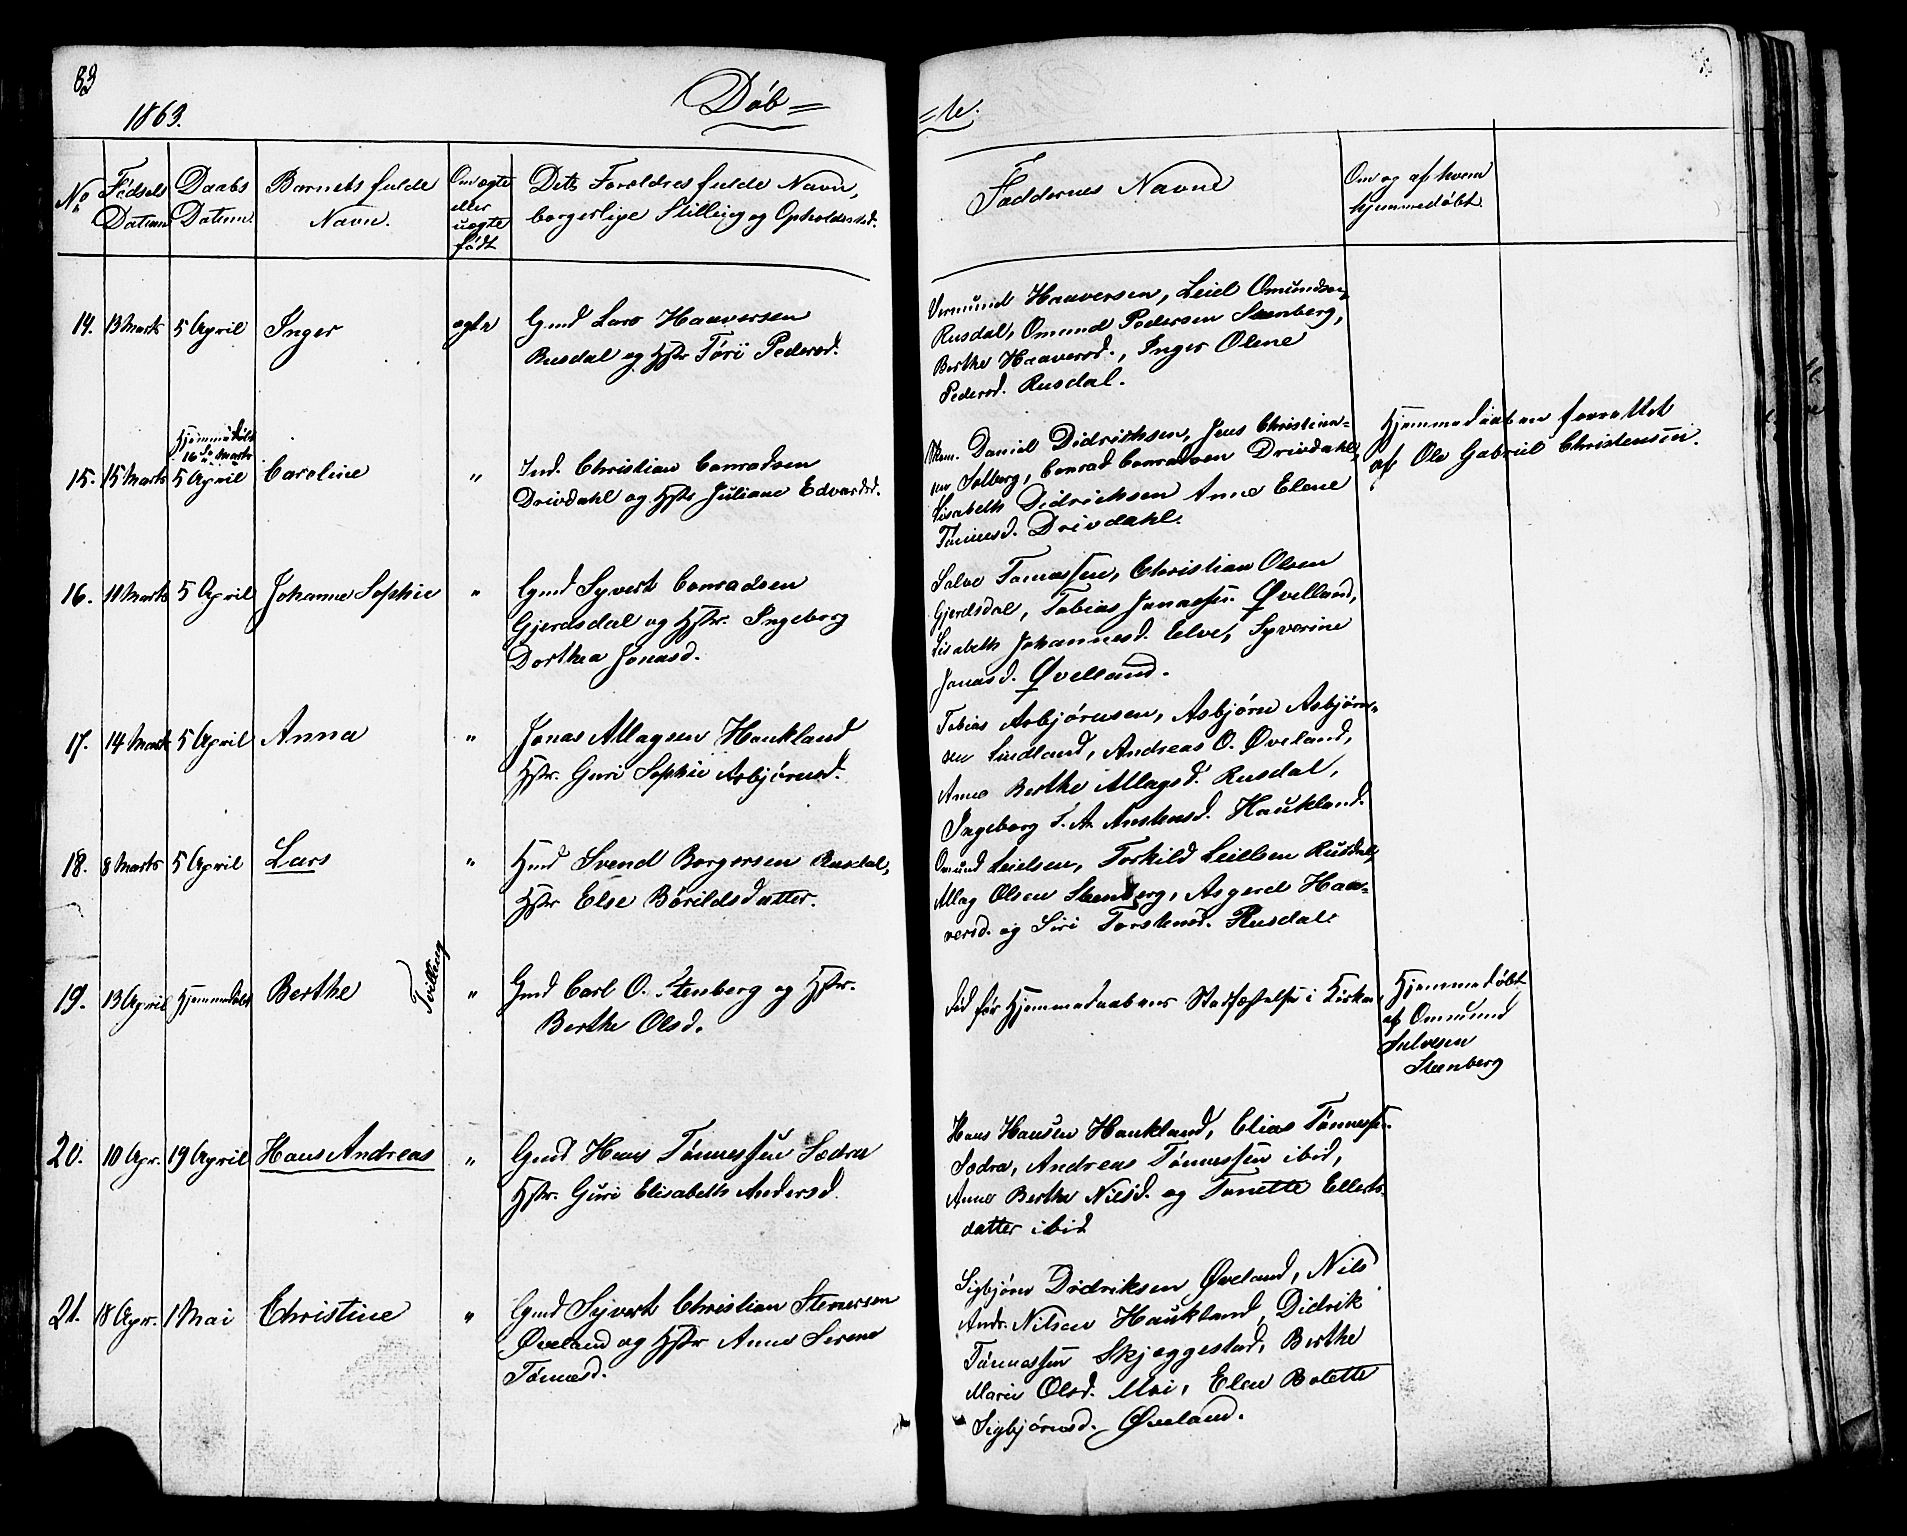 83
1863.
Døb=
=te.
No
Fødsels Datum
Daabs Datum
Barnets fulde Navn.
Om ægte eller uægte født
Dets Forældres fulde Navn, borgerlige Stilling og Opholdssted.
Faddernes Navne
Om og af hvem hjemmedøbt.
14. 13 Marts 5 April Inger ægte Gmd Lars Haaversen
Rusdal og Hstr Tøri Pedersd.
Vermund Haaversen, Leiel Omundsen
Rusdal, Omund Pedersen Steenberg,
Berthe Haaversd., Inger Olene
Pedersd. Rusdal.
Hjemmedøbt
16de Marts
15. 15 Marts 5 April Caroline " Ind. Christian Conradsen
Drivdahl og Hstr Juliane Edvardsd.
Daniel Didrichsen, Jens Christian-
sen Solberg, Conrad Conradsen Drivdahl,
Lisabeth Didrichsen Anne Elene
Tønnesd. Drivdahl.
Hjemmedaaben forrettet
af Ole Gabriel Christensen.
16. 11 Marts 5 April Johanne Sophie " Gmd Syvert Conradsen
Gjerdsdal og Hstr. Ingeborg
Dorthea Jonasd.
Salve Tønnessen, Christian Olsen
Gjerdsdal, Tobias Jonassen Øvelland,
Lisabeth Johannesd. Eelve, Syverine
Jonasd. Øvelland.
17. 14 Marts 5 April Anna " Jonas Allagsen Haukland
Hstr. Guri Sophie Asbjørnsd.
Tobias Asbjørnsen, Asbjørn Asbjørn-
sen Lindland, Andreas O. Øveland,
Anne Berthe Allagsd. Rusdal,
Ingeborg T. A. Anstensd. Haukland.
18. 8 Marts 5 April Lars " Hmd Svend Borgersen Rusdal,
Hstr Else Børildsdatter.
Omund Leielsen, Torkild Leielsen Rusdal,
Allag Olsen Steenberg, Asgerd Haa-
versd. og Siri Torstensd. Rusdal.
19. 13 April Hjemmedøbt Berthe Tvilling " Gmd Carl O. Stenberg og Hstr.
Berthe Olsd.
Død før Hjemmedaabens Stadfæstelse i Kirken,
Hjemmedøbt
af Ommund
Salvesen
Steenberg
20. 10 Apr. 19 April Hans Andreas " Gmd Hans Tønnessen Sædra
Hstr. Guri Elisabeth Andersd.
Hans Hansen Haukland, Elias Tønnessen
Sædra, Andreas Tønnessen ibid,
Anne Berthe Nilsd. og Tonette Ellerts-
datter ibid
21. 18 Apr. 1 Mai Christine " Gmd Syvert Christian Stenersen
Øveland og Hstr Anne Serene
Tønnesd.
Sigbjørn Didriksen Øveland, Nils
Andr. Nilsen Haukland, Didrik
Tønnessen Skjeggestad, Berthe
Marie Olsd. Moi, Elen Bolette
Sigbjørnsd. Øveland.